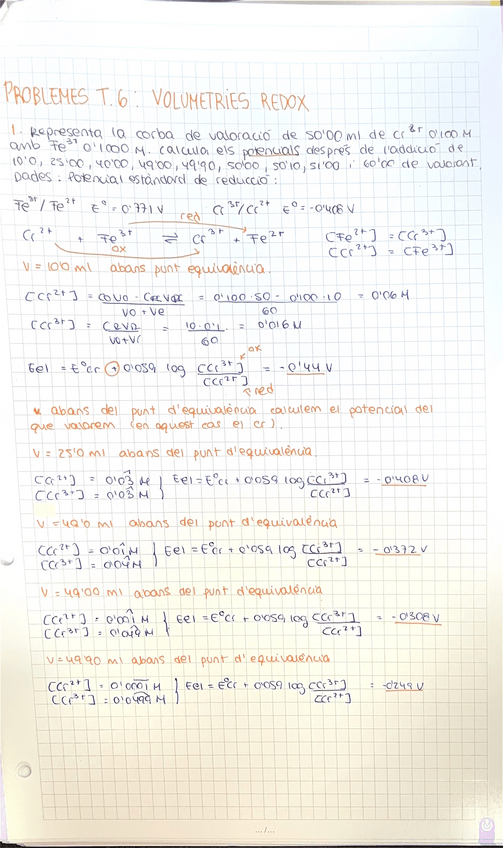 PROBLEMES T.6: VOLUMETRIES REDOX
1. Representa la corba de valoració de 50'00 ml de Cr²⁺ 0'100 M
amb Fe³⁺ 0'1000 M. calcula els potencials després de l'addició de
10'0, 25'00, 40'00, 49'00, 49'90, 50'00, 50'10, 51'00 i 60'00 de valorant.
Dades: Potencial estàndard de reducció:
Fe³⁺/Fe²⁺ E° = 0'771 V Cr³⁺/Cr²⁺ E° = -0'408 V
red
Cr²⁺ + Fe³⁺ ⇌ Cr³⁺ + Fe²⁺ [Fe²⁺] = [Cr³⁺]
ox [Cr²⁺] = [Fe³⁺]
V = 10'0 ml abans punt equivalència.
[Cr²⁺] = (CoVo - CaxVax)/(Vo + Ve) = (0'100·50 - 0'100·10)/60 = 0'06 M
[Cr³⁺] = CeVa/(Vo+Ve) = 10·0'1/60 = 0'016 M
ox
Eel = E°cr + 0'059 log [Cr³⁺]/[Cr²⁺] = -0'44 V
red
* abans del punt d'equivalència calculem el potencial del
que valorem (en aquest cas el cr).
V = 25'0 ml abans del punt d'equivalència.
[Cr²⁺] = 0'03̂ M } Eel = E°cr + 0'059 log [Cr³⁺]/[Cr²⁺] = -0'408 V
[Cr³⁺] = 0'03̂ M
V = 40'0 ml abans del punt d'equivalència
[Cr²⁺] = 0'01̂ M } Eel = E°cr + 0'059 log [Cr³⁺]/[Cr²⁺] = -0'372 V
[Cr³⁺] = 0'04̂ M
V = 49'00 ml abans del punt d'equivalència
[Cr²⁺] = 0'001̂ M } Eel = E°cr + 0'059 log [Cr³⁺]/[Cr²⁺] = -0'308 V
[Cr³⁺] = 0'049̂ M
V = 49'90 ml abans del punt d'equivalència
[Cr²⁺] = 0'0001 M } Eel = E°cr + 0'059 log [Cr³⁺]/[Cr²⁺] = -0'249 V
[Cr³⁺] = 0'0499 M
.../...